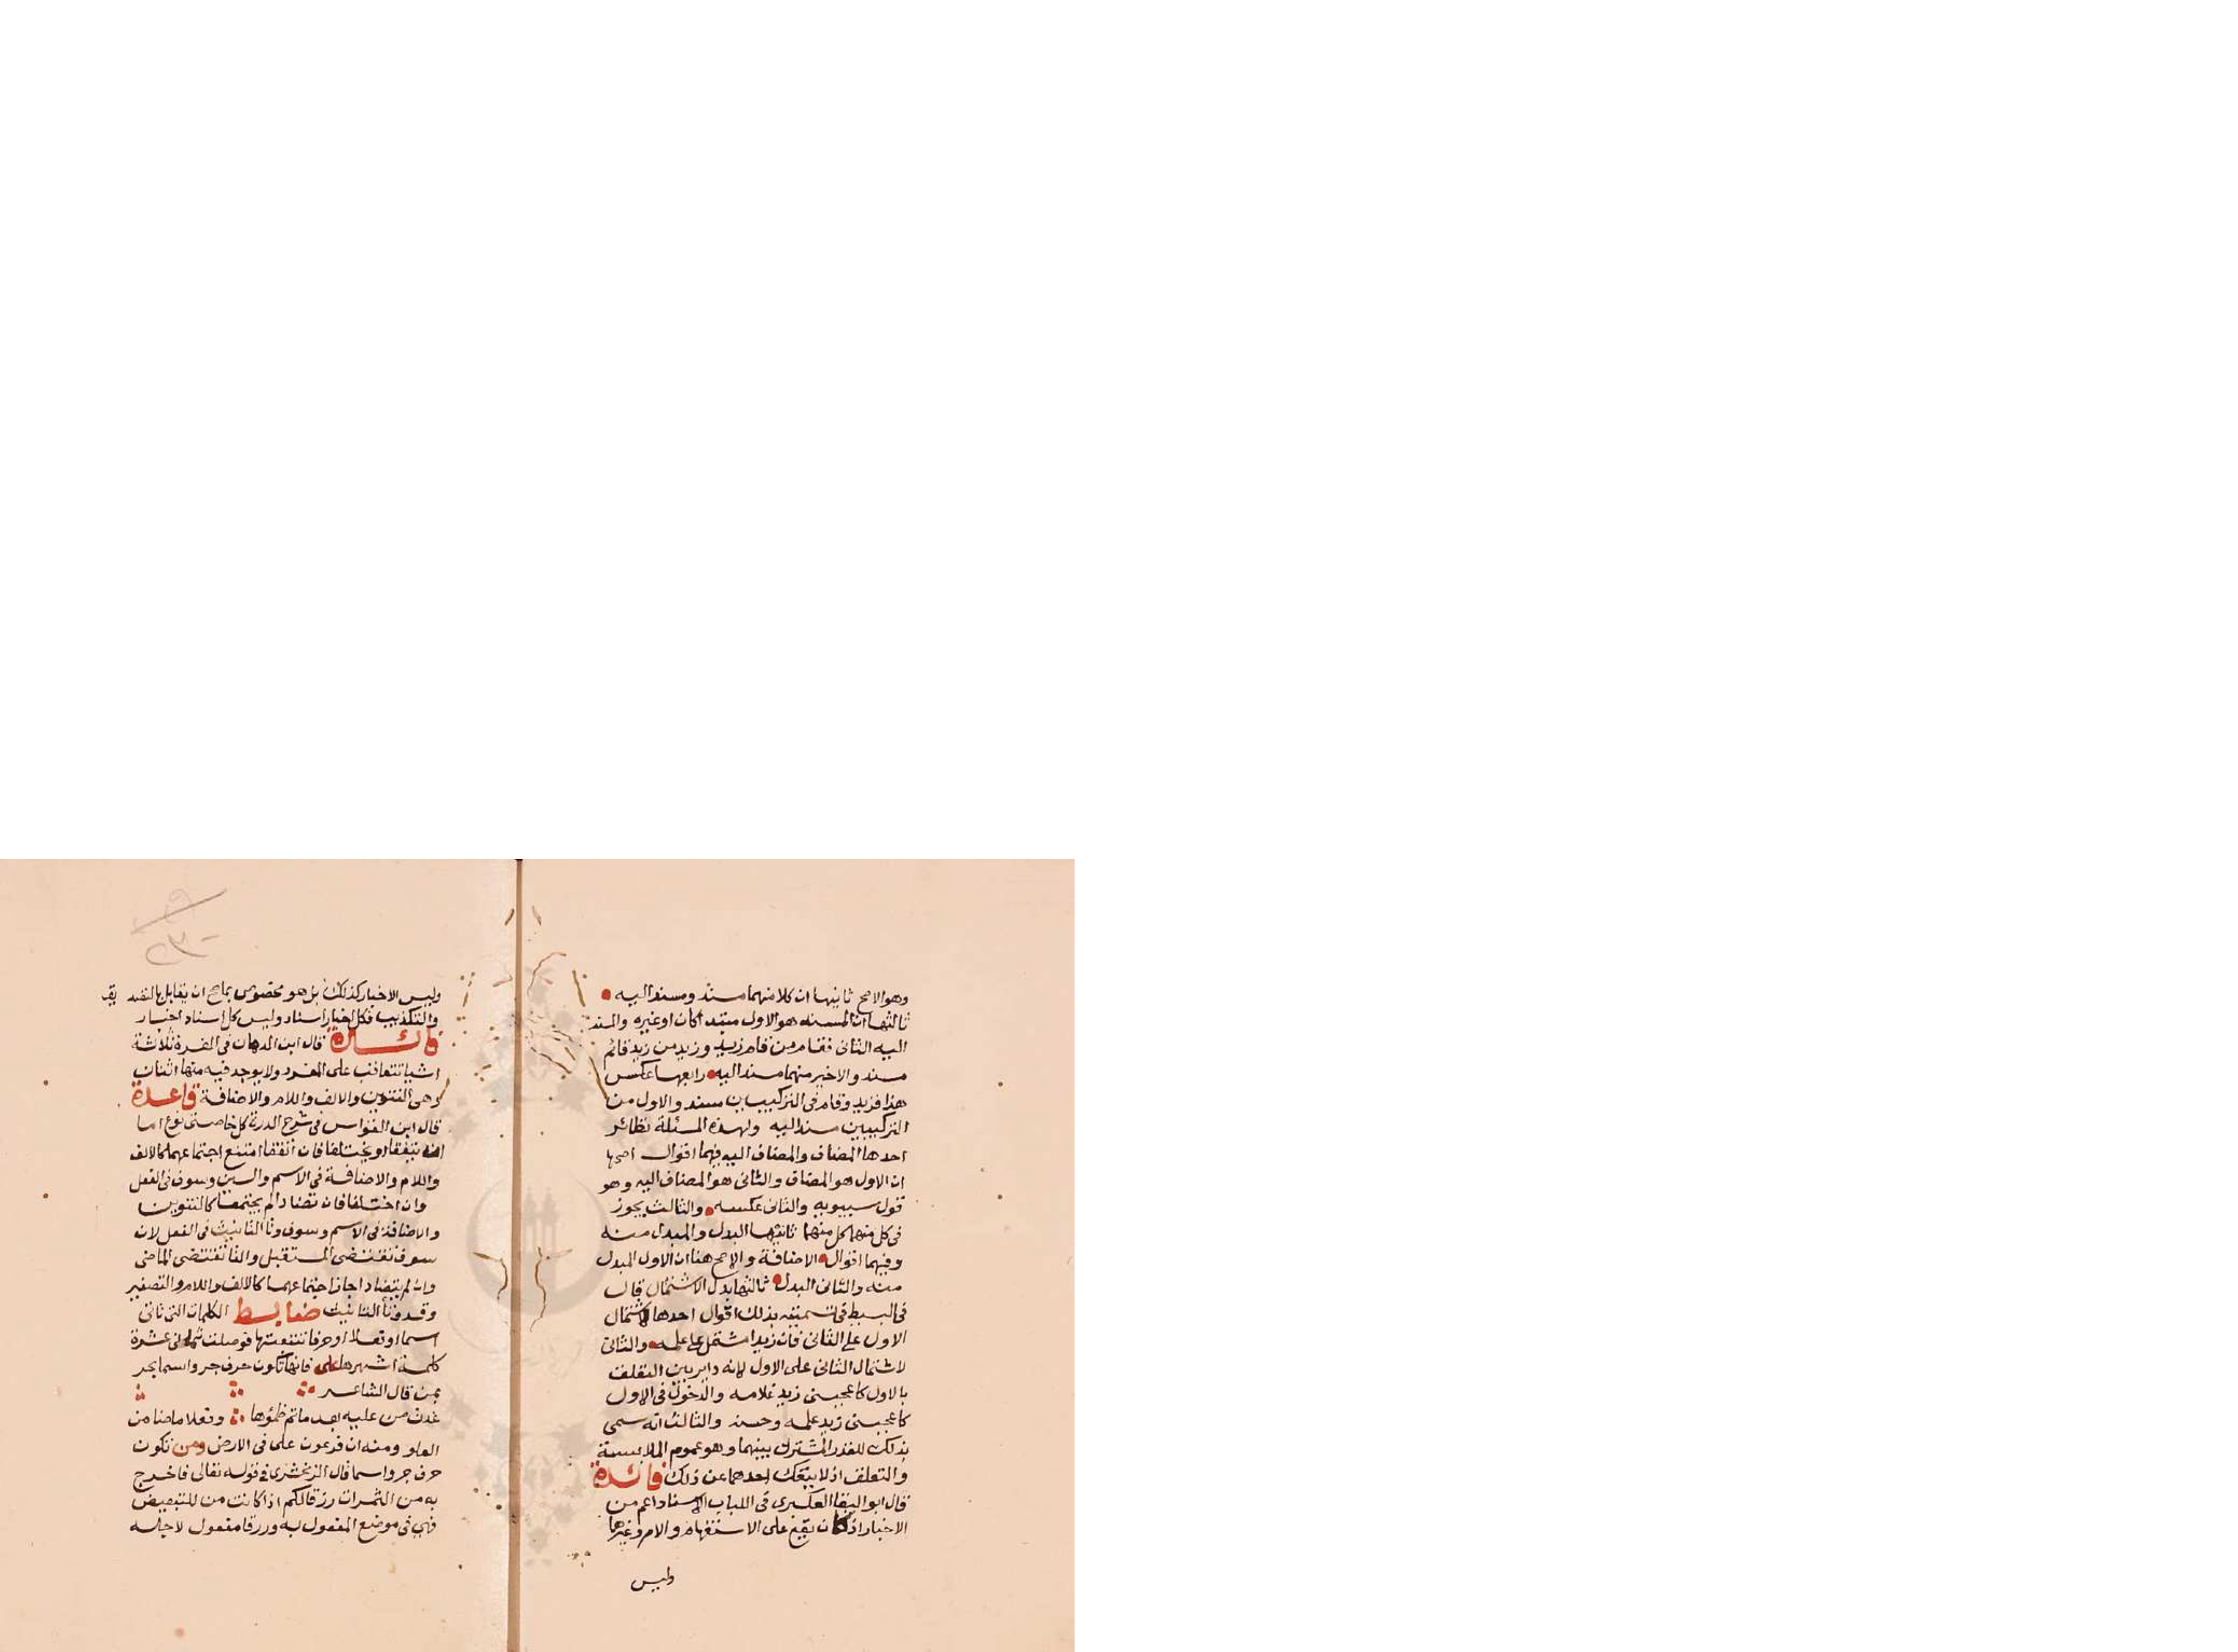 وهو الاصح ثانيها ان كلا منهما مسند ومسند اليه
ثالثها ان المسند هو الاول مبتدا كان او غيره والمسند
اليه الثانى فقام من قام زيد وزيد من زيد قائم
مسند والاخير منهما مسند اليه رابعها عكس
هذا فزيد وقام فى التركيبين مسند والاول من
التركيبين مسند اليه ولهذه المسئلة نظائر
احدها المضاف والمضاف اليه فيهما اقوال اصحها
ان الاول هو المضاف والثانى هو المضاف اليه وهو
قول سيبويه والثانى عكسه والثالث يجوز
فى كل منهما كل منهما ثانيها البدل والمبدل منه
وفيهما اقوال الاضافة والاصح هنا ان الاول المبدل
منه والثانى البدل ثالثها بدل الاشتمال قال
فى البسيط فى تسميته بذلك اقوال احدها لاشتمال
الاول على الثانى فان زيدا مشتمل على علمه والثانى
لاشتمال الثانى على الاول لانه داير بين التعلق
بالاول كاعجبنى زيد غلامه والدخول فى الاول
كاعجبنى زيد علمه وحسنه والثالث انه سمى
بذلك للقدر المشترك بينهما وهو عموم الملابسة
والتعلق اذ لا ينفك احدهما عن ذلك فائدة
قال ابو البقا العكبرى فى اللباب الاسناد اعم من
الاخبار اذ كان يقع على الاستفهام والامر وغيرها
وليس
وليس الاخبار كذلك بل هو مخصوص بما صح ان يقابل بالتصد يق
والتكذيب فكل اخبار اسناد وليس كل اسناد اخبار
فائدة قال ابن الدهان فى الغرة ثلاثة
اشيا تتعاقب على المفرد ولا يوجد فيه منها اثنان
وهى التنوين والالف واللام والاضافة قاعدة
قال ابن القواس فى شرح الدرة كل خاصتى نوع اما
ان يتفقا او يختلفا فان اتفقا امتنع اجتماعهما كالالف
واللام والاضافة فى الاسم والسين وسوف فى الفعل
وان اختلفا فان تضادا لم يجتمعا كالتنوين
والاضافة فى الاسم وسوف وتا التانيث فى الفعل لان
سوف تقتضى المستقبل والتا تقتضى الماضى
وان لم يتضادا جاز اجتماعهما كالالف واللام والتصغير
وقد وتا التانيث ضابط الكلمات التى تاتى
اسما او فعلا او حرفا تتبعتها فوصلت ثمانى عشرة
كلمة اشهرها على فانها تكون حرف جر واسما يجر
بمن قال الشاعر
غدت من عليه بعد ما تم ظمؤها وفعلا ماضيا من
العلو ومنه ان فرعون على فى الارض ومن تكون
حرف جر واسما قال الزمخشرى فى قوله تعالى فاخرج
به من الثمرات رزقا لكم اذا كانت من للتبعيض
فهي فى موضع المفعول به ورزقا مفعول لاجله